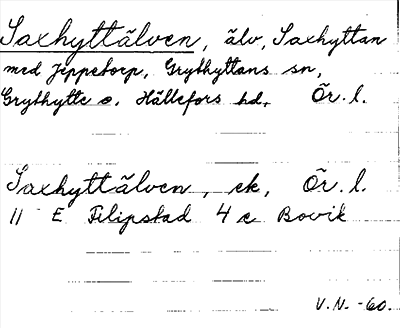 Saxhyttälven, älv, Saxhyttan
med Jeppetorp, Grythyttans sn,
Grythytte o. Hällefors hd, Ör. l.
Saxhyttälven, ek, Ör. l.
11 E Filipstad 4 c Bovik
V.N. -60.